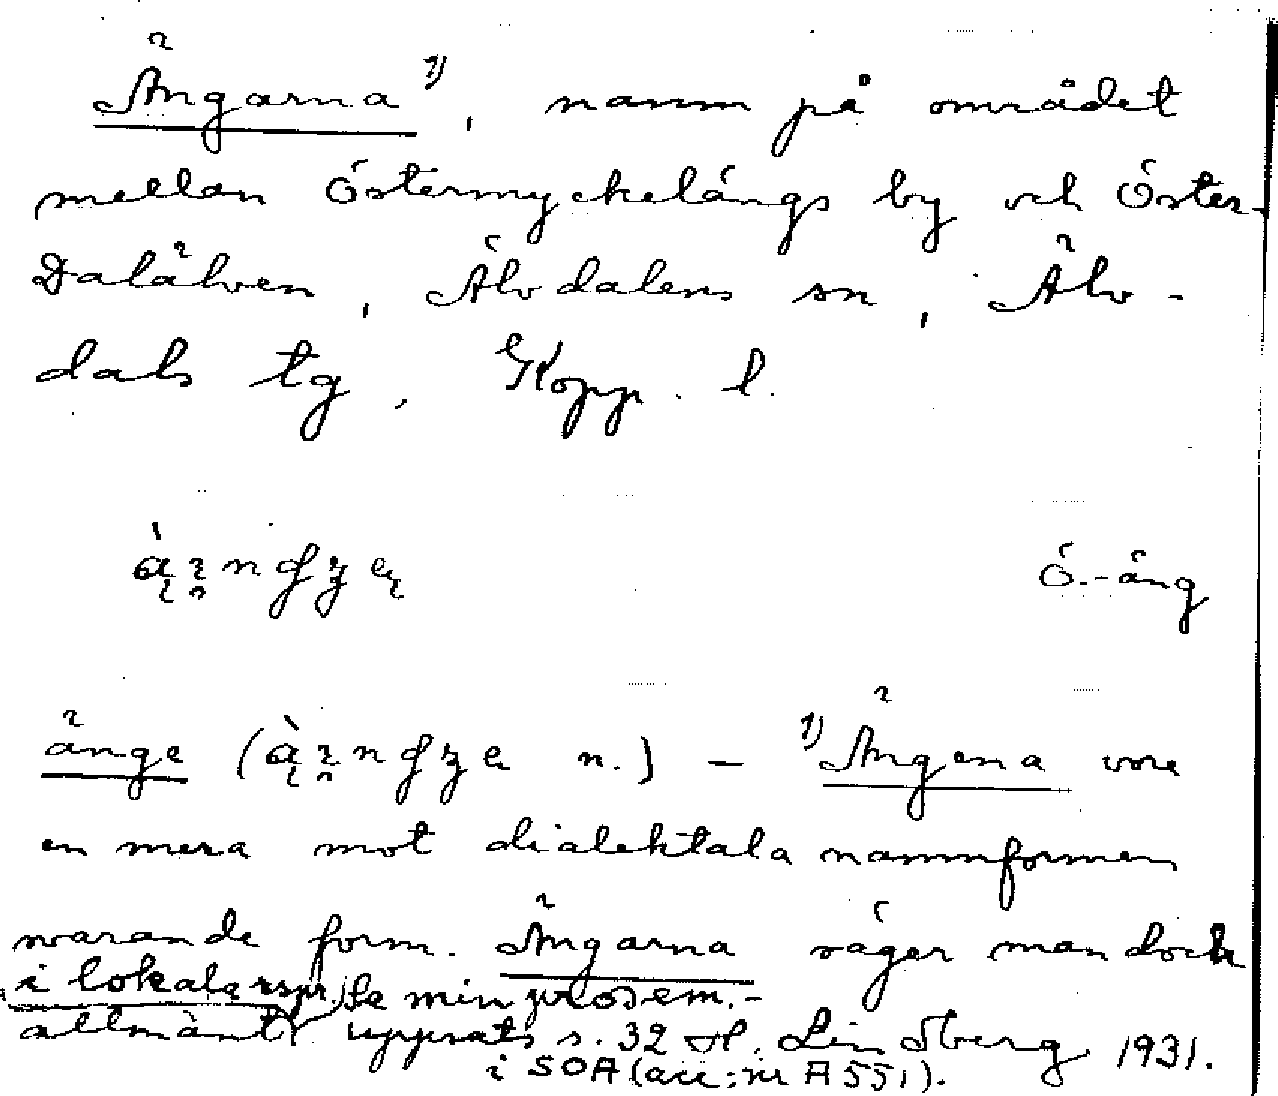 Ängarna 1), namn på området
mellan Östermyckelängs by och Öster-
Dalälven, Älvdalens sn, Älv-
dals tg, Kopp. l.
Ö.-äng
änge ( n.) – 1) Ängena vore
en mera mot dialektala namnformen
svarande form. Ängarna säger man dock
i lokalt rspr. Se min prosem.-
allmänt uppsats s. 32 H. Lindberg 1931.
i SOA (acc:nr A551).